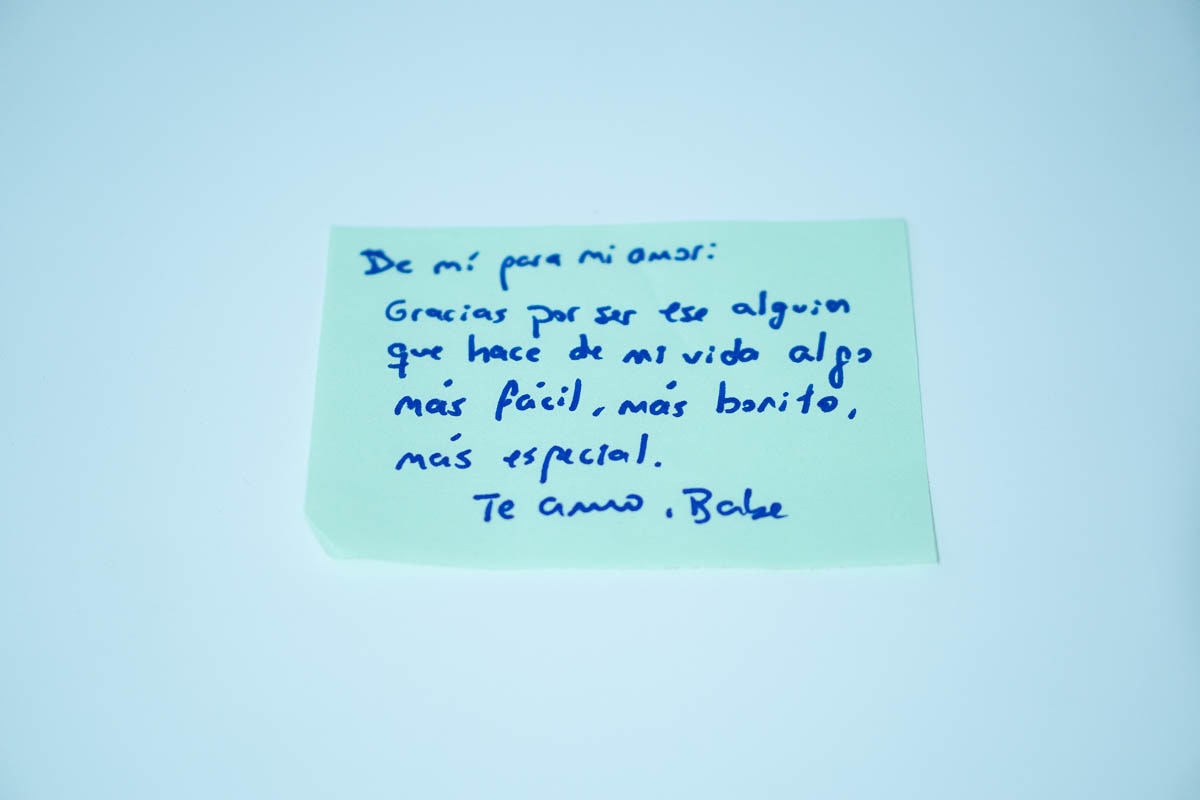 De mí para mi amor:
Gracias por ser ese alguien
que hace de mi vida algo
más fácil, más bonito,
más especial.
Te amo, Babe